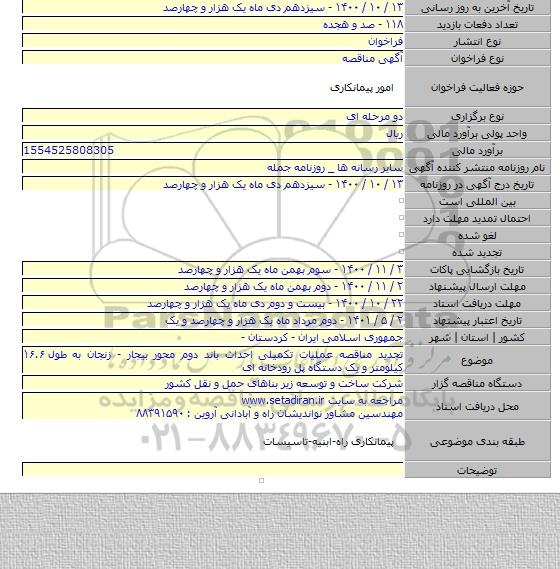 تاریخ آخرین به روز رسانی ۱۳ / ۱۰ / ۱۴۰۰ - سیزدهم دی ماه یک هزار و چهارصد
تعداد دفعات بازدید ۱۱۸ - صد و هجده
نوع انتشار فراخوان
نوع فراخوان آگهی مناقصه
حوزه فعالیت فراخوان امور پیمانکاری
نوع برگزاری دو مرحله ای
واحد پولی برآورد مالی ریال
برآورد مالی 1554525808305
نام روزنامه منتشر کننده آگهی سایر رسانه ها _ روزنامه جمله
تاریخ درج آگهی در روزنامه ۱۳ / ۱۰ / ۱۴۰۰ - سیزدهم دی ماه یک هزار و چهارصد
بین المللی است
احتمال تمدید مهلت دارد
لغو شده
تجدید شده
تاریخ بازگشایی پاکات ۳ / ۱۱ / ۱۴۰۰ - سوم بهمن ماه یک هزار و چهارصد
مهلت ارسال پیشنهاد ۲ / ۱۱ / ۱۴۰۰ - دوم بهمن ماه یک هزار و چهارصد
مهلت دریافت اسناد ۲۲ / ۱۰ / ۱۴۰۰ - بیست و دوم دی ماه یک هزار و چهارصد
تاریخ اعتبار پیشنهاد ۲ / ۵ / ۱۴۰۱ - دوم مرداد ماه یک هزار و چهارصد و یک
کشور | استان | شهر جمهوری اسلامی ایران - کردستان -
موضوع تجدید مناقصه عملیات تکمیلی احداث باند دوم محور بیجار - زنجان به طول ۱۶.۶
کیلومتر و یک دستگاه پل رودخانه ای
دستگاه مناقصه گزار شرکت ساخت و توسعه زیر بناهای حمل و نقل کشور
محل دریافت اسناد مراجعه به سایت www.setadiran.ir
مهندسین مشاور نواندیشان راه و آبادانی آروین : ۸۸۳۹۱۵۹۰
۰۲۱-۸۸۳۴۹۶۷۰-۵
طبقه بندی موضوعی پیمانکاری راه-ابنیه-تاسیسات
توضیحات